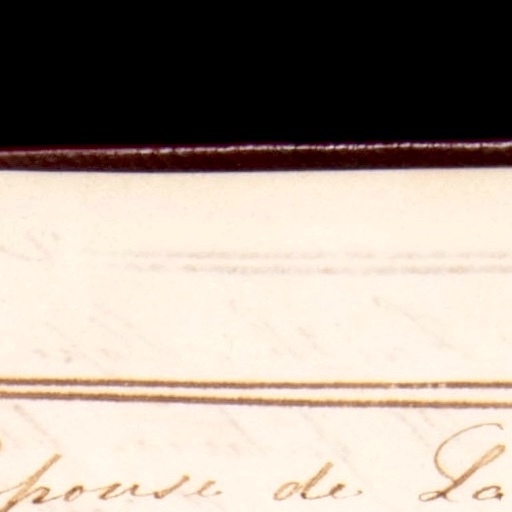 épouse de La